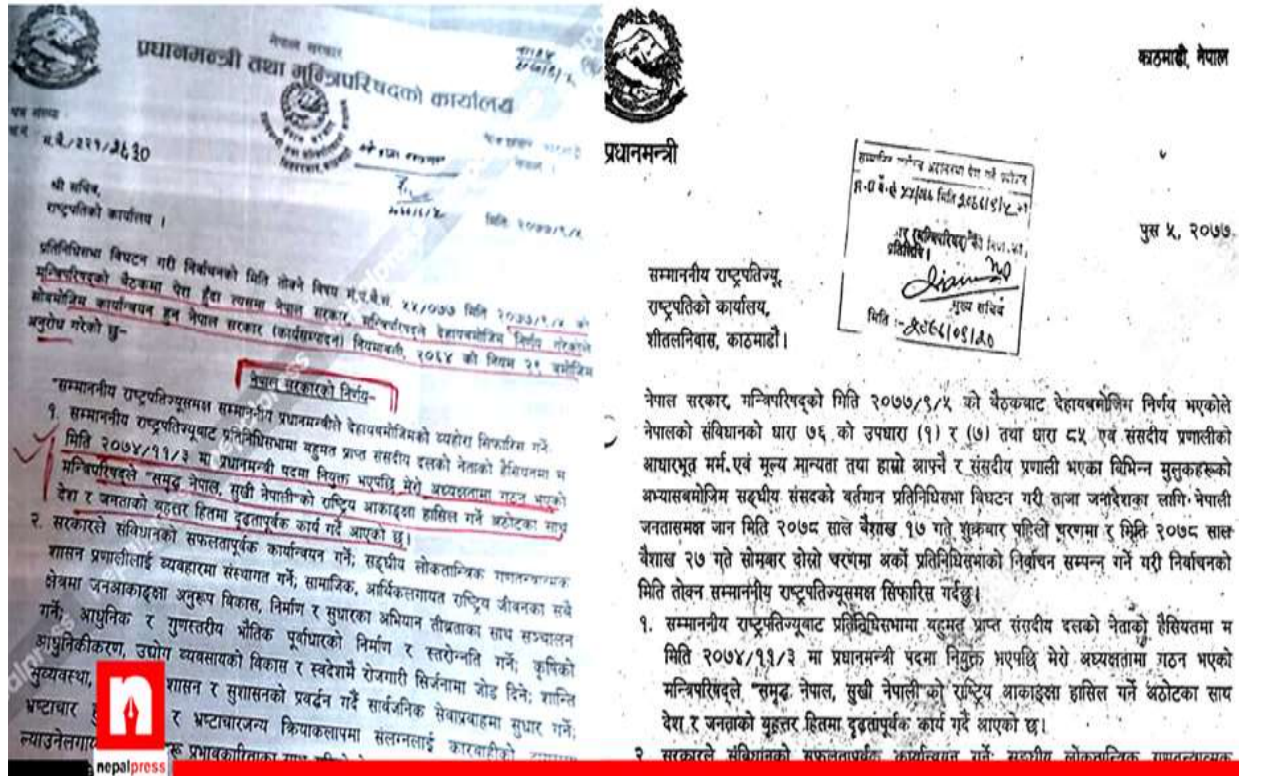 नेपाल सरकार
प्रधानमन्त्री तथा मन्त्रिपरिषद्को कार्यालय
श्री सचिव,
राष्ट्रपतिको कार्यालय ।
मिति २०७७/९/५
प्रतिनिधिसभा विघटन गरी निर्वाचनको मिति तोक्ने विषय मं.प.बै.सं. ४४/०७७ मिति २०७७/९/५ को
मन्त्रिपरिषद्को बैठकमा पेश हुँदा त्यसमा नेपाल सरकार, मन्त्रिपरिषद्ले देहायबमोजिम निर्णय गरेकोले
सोबमोजिम कार्यान्वयन हुन नेपाल सरकार (कार्यसम्पादन) नियमावली, २०६४ को नियम २९ बमोजिम
अनुरोध गरेको छु-
नेपाल सरकारको निर्णय-
"सम्माननीय राष्ट्रपतिज्यूसमक्ष सम्माननीय प्रधानमन्त्रीले देहायबमोजिमको व्यहोरा सिफारिस गर्ने-
१. सम्माननीय राष्ट्रपतिज्यूबाट प्रतिनिधिसभामा बहुमत प्राप्त संसदीय दलको नेताको हैसियतमा म
मिति २०७४/११/३ मा प्रधानमन्त्री पदमा नियुक्त भएपछि मेरो अध्यक्षतामा गठन भएको
मन्त्रिपरिषद्ले "समृद्ध नेपाल, सुखी नेपाली"को राष्ट्रिय आकाङ्क्षा हासिल गर्ने अठोटका साथ
देश र जनताको बृहत्तर हितमा दृढतापूर्वक कार्य गर्दै आएको छ।
२. सरकारले संविधानको सफलतापूर्वक कार्यान्वयन गर्ने; सङ्घीय लोकतान्त्रिक गणतन्त्रात्मक
शासन प्रणालीलाई व्यवहारमा संस्थागत गर्ने; सामाजिक, आर्थिकलगायत राष्ट्रिय जीवनका सबै
क्षेत्रमा जनआकाङ्क्षा अनुरूप विकास, निर्माण र सुधारका अभियान तीव्रताका साथ सञ्चालन
गर्ने; आधुनिक र गुणस्तरीय भौतिक पूर्वाधारको निर्माण र स्तरोन्नति गर्ने; कृषिको
आधुनिकीकरण, उद्योग व्यवसायको विकास र स्वदेशमै रोजगारी सिर्जनामा जोड दिने; शान्ति
सुव्यवस्था, शासन र सुशासनको प्रवर्द्धन गर्दै सार्वजनिक सेवाप्रवाहमा सुधार गर्ने;
भ्रष्टाचार र भ्रष्टाचारजन्य क्रियाकलापमा संलग्नलाई कारवाहीको
ल्याउनेलगायत
nepalpress
काठमाडौं, नेपाल
प्रधानमन्त्री
मुख्य सचिव
पुस ५, २०७७
सम्माननीय राष्ट्रपतिज्यू,
राष्ट्रपतिको कार्यालय,
शीतलनिवास, काठमाडौं।
नेपाल सरकार, मन्त्रिपरिषद्को मिति २०७७/९/५ को बैठकबाट देहायबमोजिम निर्णय भएकोले
नेपालको संविधानको धारा ७६ को उपधारा (१) र (७) तथा धारा ८५ एवं संसदीय प्रणालीको
आधारभूत मर्म एवं मूल्य मान्यता तथा हाम्रो आफ्नै र संसदीय प्रणाली भएका विभिन्न मुलुकहरूको
अभ्यासबमोजिम सङ्घीय संसदको वर्तमान प्रतिनिधिसभा विघटन गरी ताजा जनादेशका लागि नेपाली
जनतासमक्ष जान मिति २०७८ साल बैशाख १७ गते शुक्रबार पहिलो चरणमा र मिति २०७८ साल
बैशाख २७ गते सोमबार दोस्रो चरणमा अर्को प्रतिनिधिसभाको निर्वाचन सम्पन्न गर्ने गरी निर्वाचनको
मिति तोक्न सम्माननीय राष्ट्रपतिज्यूसमक्ष सिफारिस गर्दछु।
१. सम्माननीय राष्ट्रपतिज्यूबाट प्रतिनिधिसभामा बहुमत प्राप्त संसदीय दलको नेताको हैसियतमा म
मिति २०७४/११/३ मा प्रधानमन्त्री पदमा नियुक्त भएपछि मेरो अध्यक्षतामा गठन भएको
मन्त्रिपरिषद्ले "समृद्ध नेपाल, सुखी नेपाली"को राष्ट्रिय आकाङ्क्षा हासिल गर्ने अठोटका साथ
देश र जनताको बृहत्तर हितमा दृढतापूर्वक कार्य गर्दै आएको छ।
२ सरकारले संविधानको सफलतापूर्वक कार्यान्वयन गर्ने; सङ्घीय लोकतान्त्रिक गणतन्त्रात्मक